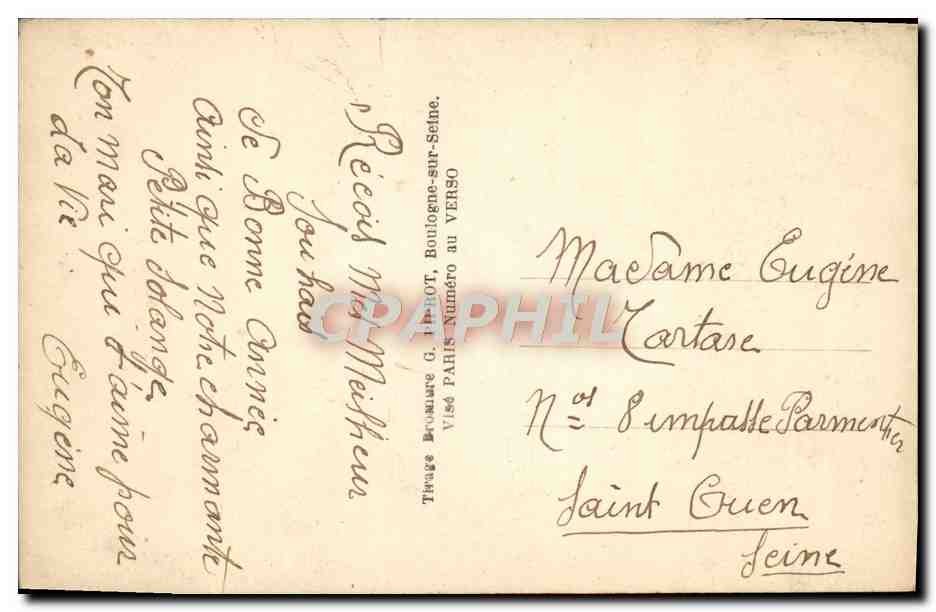 Récois Mes Meilheur
Souhais
De Bonne année
ainsi que notre charmante
Pétite Solange
Ton mari qui t'aime pour
La Vie.
Eugène
Tirage Bromure G. PIPROT, Boulogne-sur-Seine.
Visé PARIS Numéro au VERSO
CPAPHIL
Madame Eugéne
Tartare
Nos 8 impasse Parmentier
Saint Ouen
Seine